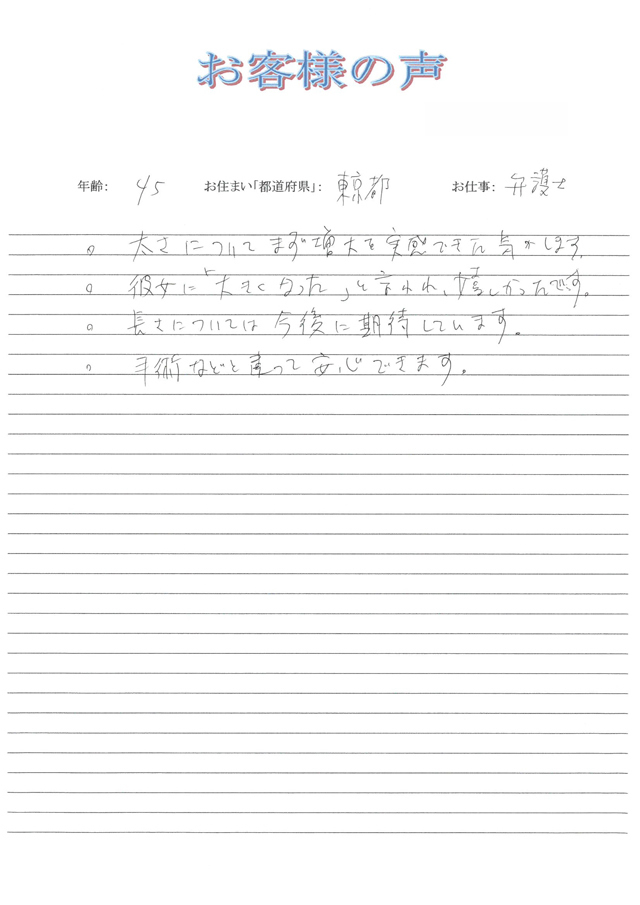 お客様の声
年齢: 45 お住まい「都道府県」: 東京都 お仕事: 弁護士
。太さについてまず増大を実感できた気がします。
。彼女に「大きくなった」と言われ、嬉しかったです。
。長さについては今後に期待しています。
。手術などと違って安心できます。